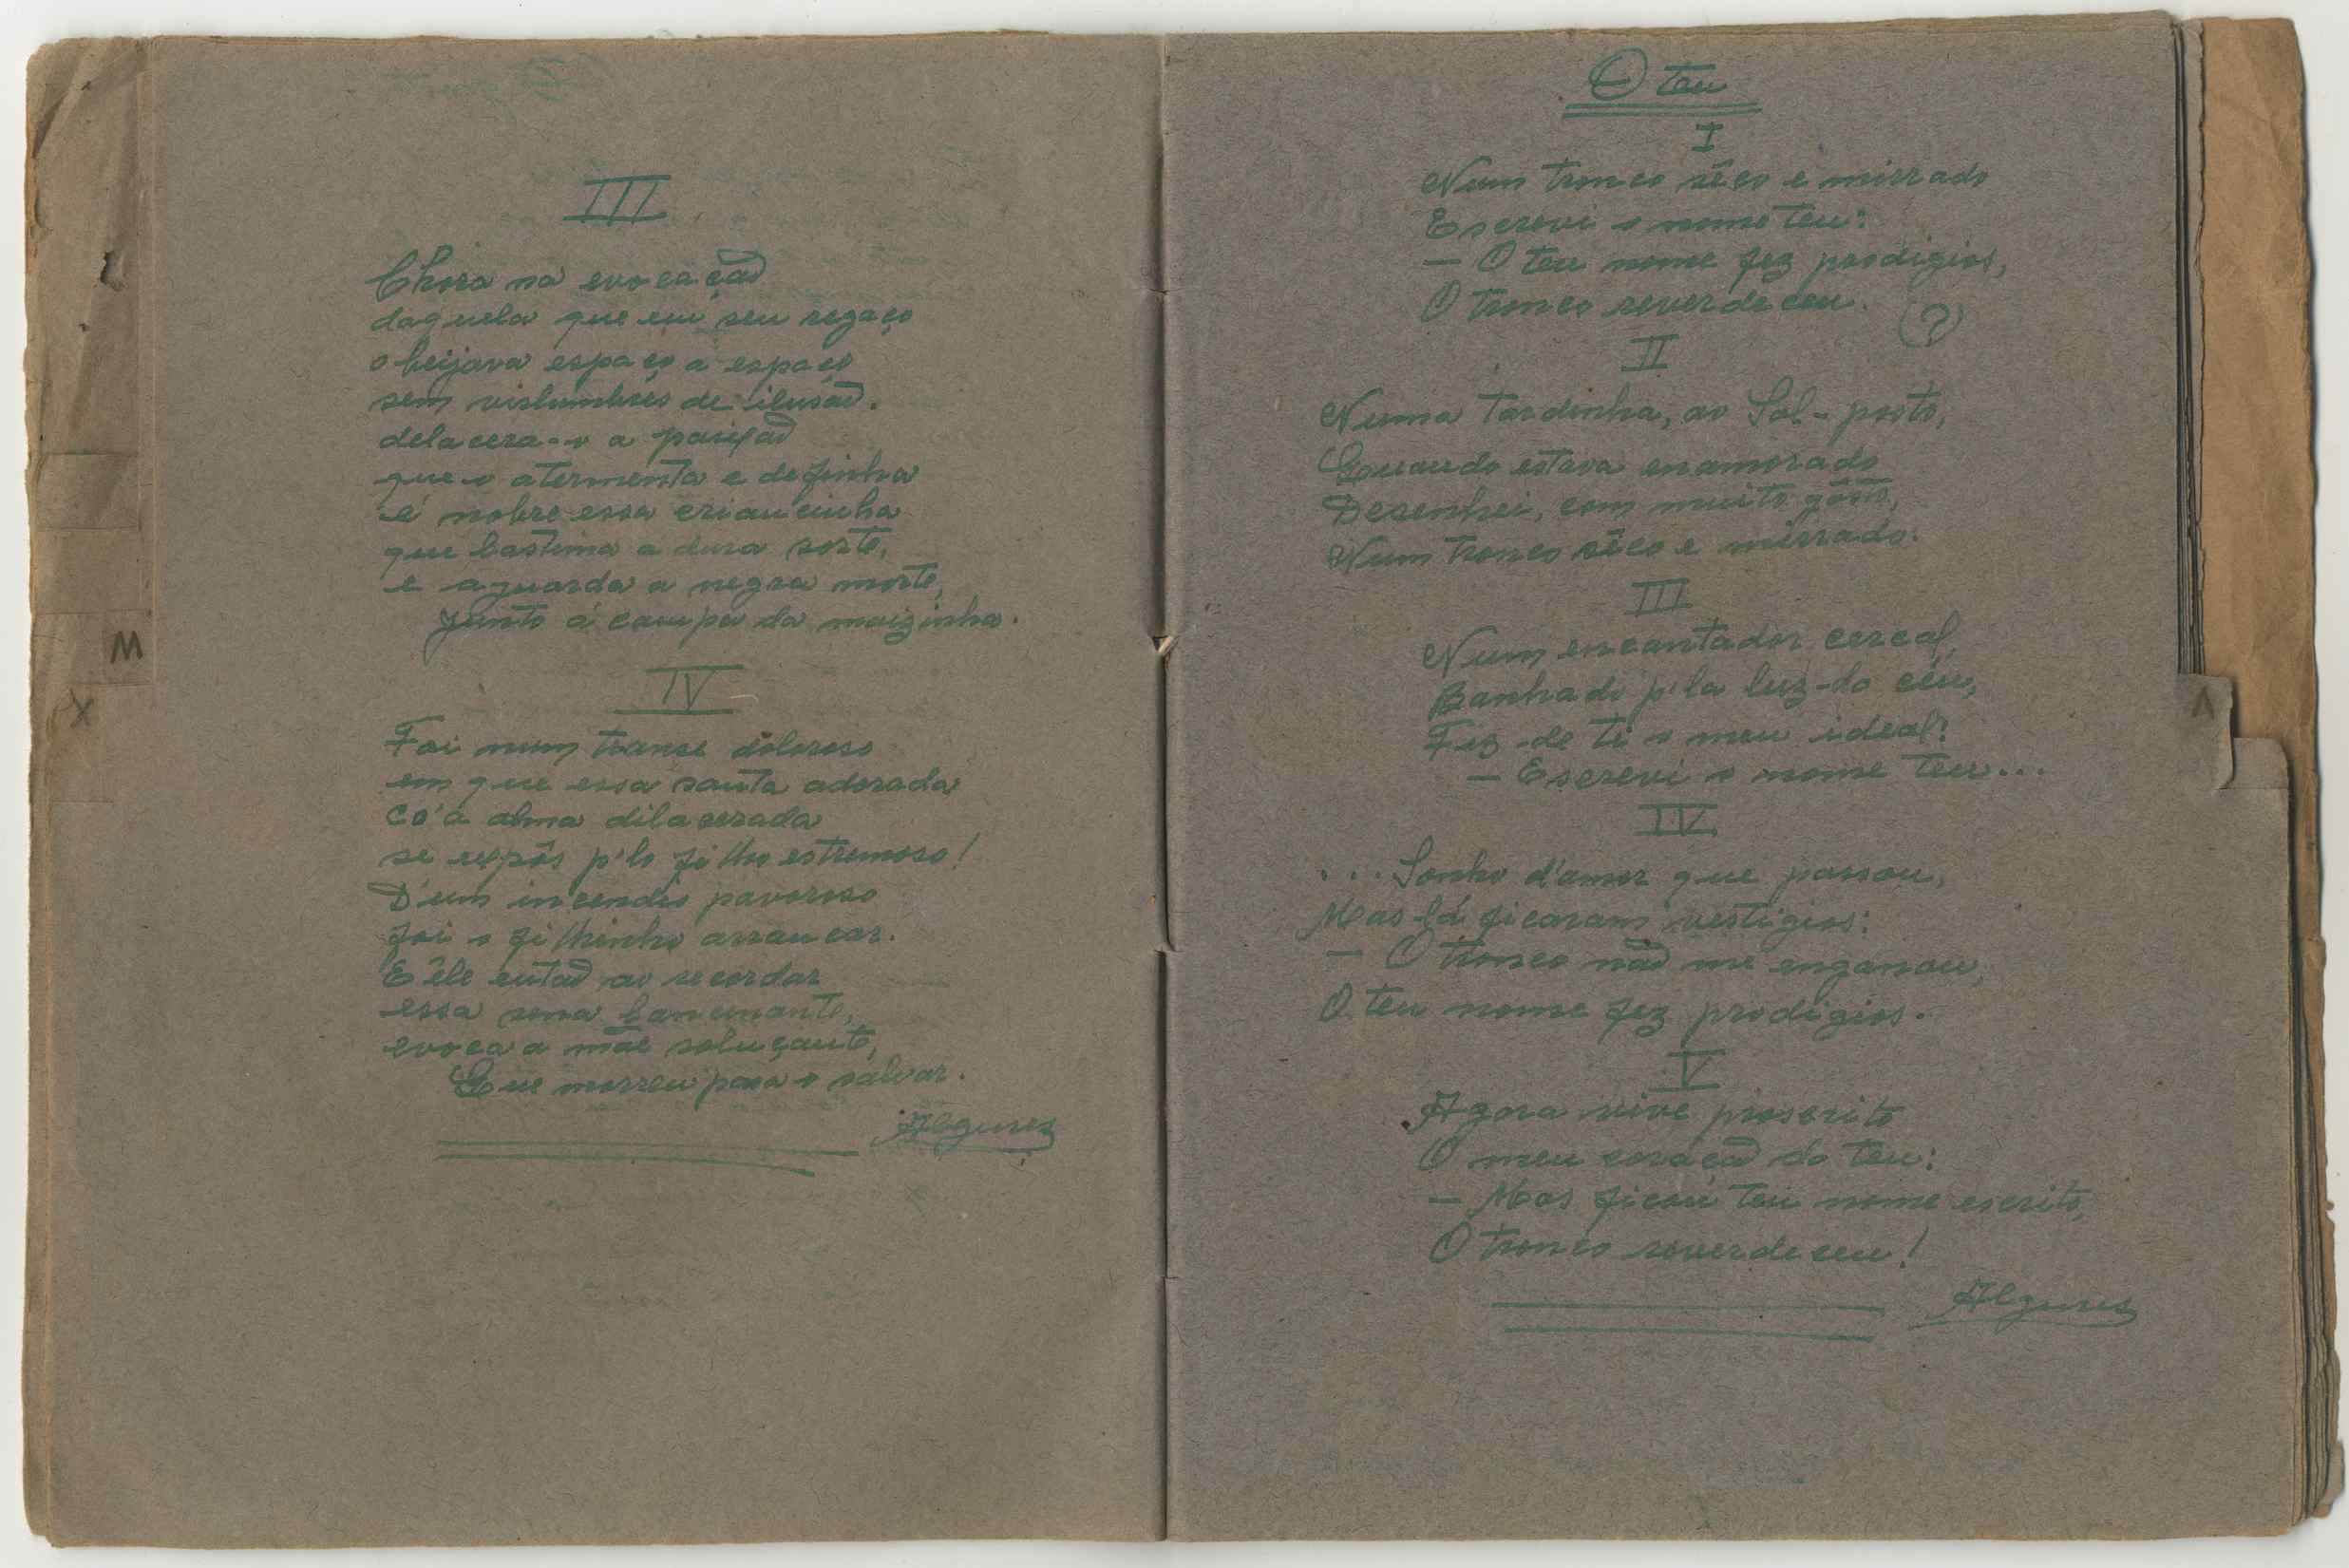 III
Chora na evocação
daquela que em seu regaço
o beijava espaço a espaço
sem vislumbres de ilusão.
delacera-o a paixão
que o atermenta e definha
é nobre essa criancinha
que lastima a dura sorte,
e aguarda a negra morte,
junto á campa da maizinha.
IV
Foi num transe doloroso
em que essa santa adorada
co'a alma dilacerada
se expôs p'lo filho estremoso!
D'um incendio pavoroso
foi o filhinho arrancar.
E êle então ao recordar
essa sena lancinante,
evoca a mãe soluçante,
Que morreu para o salvar.
Algures
M
X
O teu
I
Num tronco sêco e mirrado
Escrevi o nome teu:
— O teu nome fez prodigios,
O tronco reverdeceu.
(?)
II
Numa tardinha, ao Sol-posto,
Quando estava enamorado
Desenhei, com muito gôsto,
Num tronco sêco e mirrado.
III
Num encantador cercal,
Banhado p'la luz do céu,
Fiz-de ti o meu ideal:
— Escrevi o nome teu...
IV
... Sonho d'amor que passou,
Mas lá ficaram vestigios:
— O tronco não me enganou,
O teu nome fez prodigios.
V
Agora vive proscrito
O meu coração do teu:
— Mas ficou teu nome escrito,
O tronco reverdeceu!
Algures